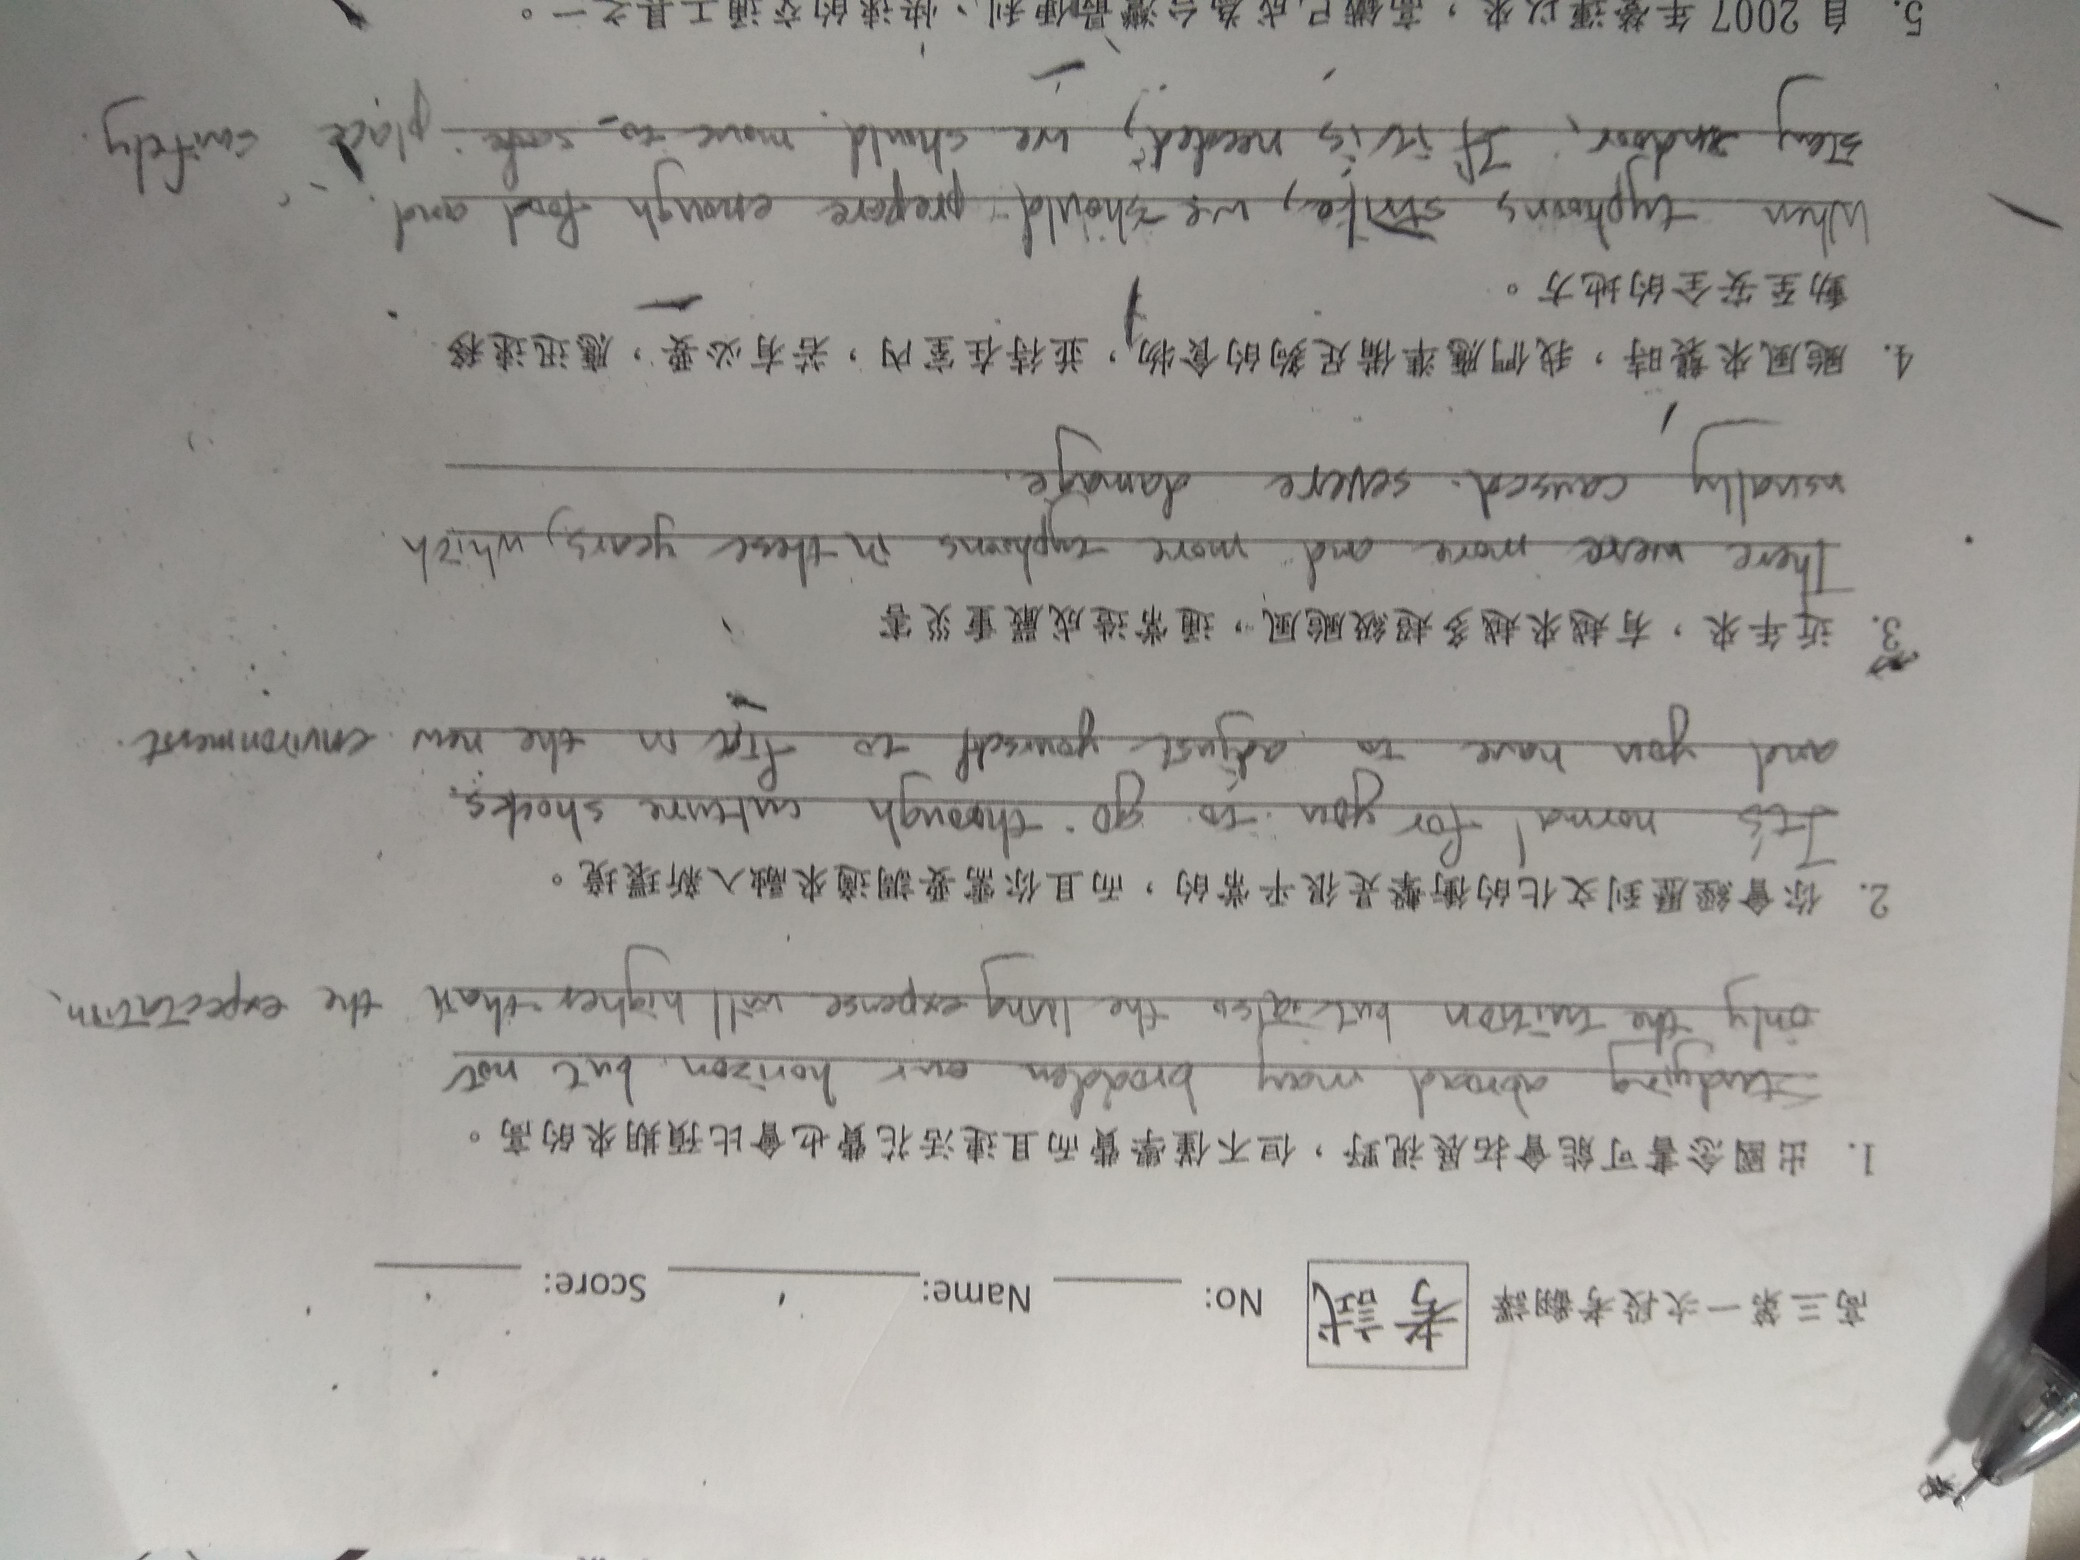 高三第一次段考翻譯 考試 No: Name: Score:
1. 出國念書可能會拓展視野，但不僅學費而且連活花費也會比預期來的高。
Studying abroad may broaden our horizon, but not
only the tuition but also the living expense will higher than the expectation.
2. 你會經歷到文化的衝擊是很平常的，而且你需要調適來融入新環境。
It's normal for you to go through culture shocks,
and you have to adjust yourself to fit in the new environment.
3. 近年來，有越來越多超級颱風，通常造成嚴重災害
There were more and more typhoons in these years, which
usually caused severe damage.
4. 颱風來襲時，我們應準備足夠的食物，並待在室內，若有必要，應迅速移
動至安全的地方。
When typhoons strike, we should prepare enough food and
stay indoor. If it is needed, we should move to safe place
5. 自 2007 年營運以來，高鐵已成為台灣最便利、快速的交通工具之一。